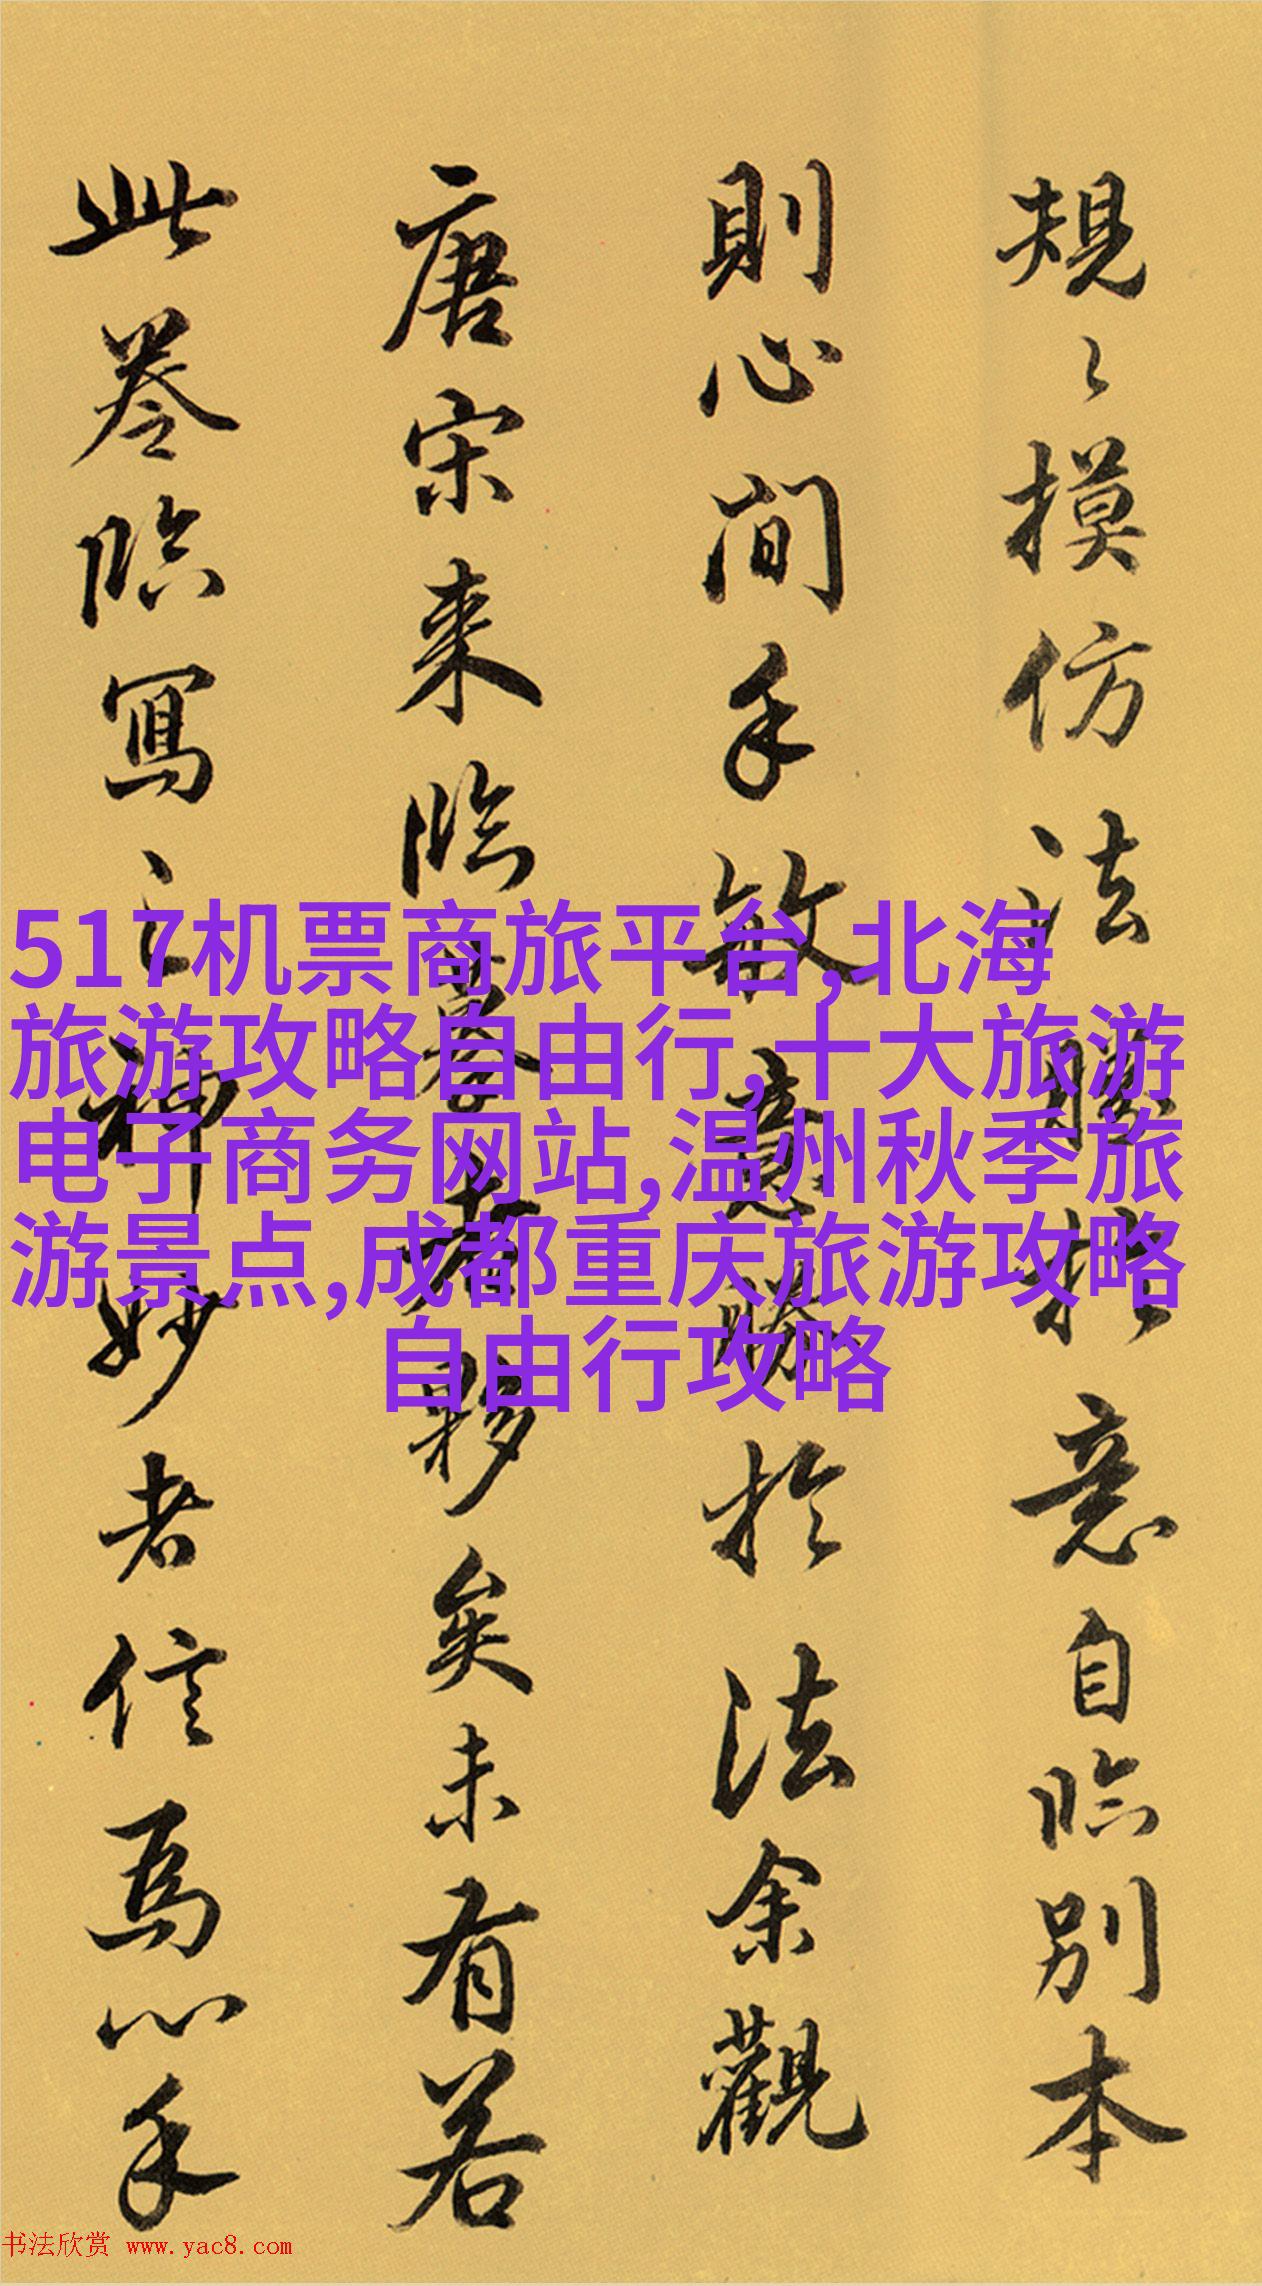 規〻摸仿法勝於意自臨別本
則心閒手敏意勝於法余觀
唐宋来臨摹者夥矣未有若
此卷臨寫之神妙者信焉心手
517机票商旅平台,北海
旅游攻略自由行,十大旅游
电子商务网站,温州秋季旅
游景点,成都重庆旅游攻略
自由行攻略
书法欣赏 www.yac8.com